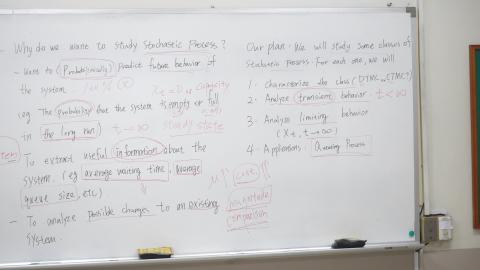 - Why do we want to study Stochastic Process?
- Want to (Probabilistically) predict future behavior of
the system. 100% (X)
X_t = 0 or capacity
(eg The probability that the system is empty or full
in the long run) t → ∞ steady state
- To extract useful information about the
system. (eg average waiting time, average
queue size, etc)
- To analyze possible changes to an existing
system.
cost
magnitude
comparison
Our plan. We will study some classes of
stochastic process. For each one, we will
1. Characterize the class (DTMC, CTMC)
2. Analyze transient behavior. t < ∞
3. Analyze limiting behavior
(X_t, t → ∞)
4. Applications. Queueing Process